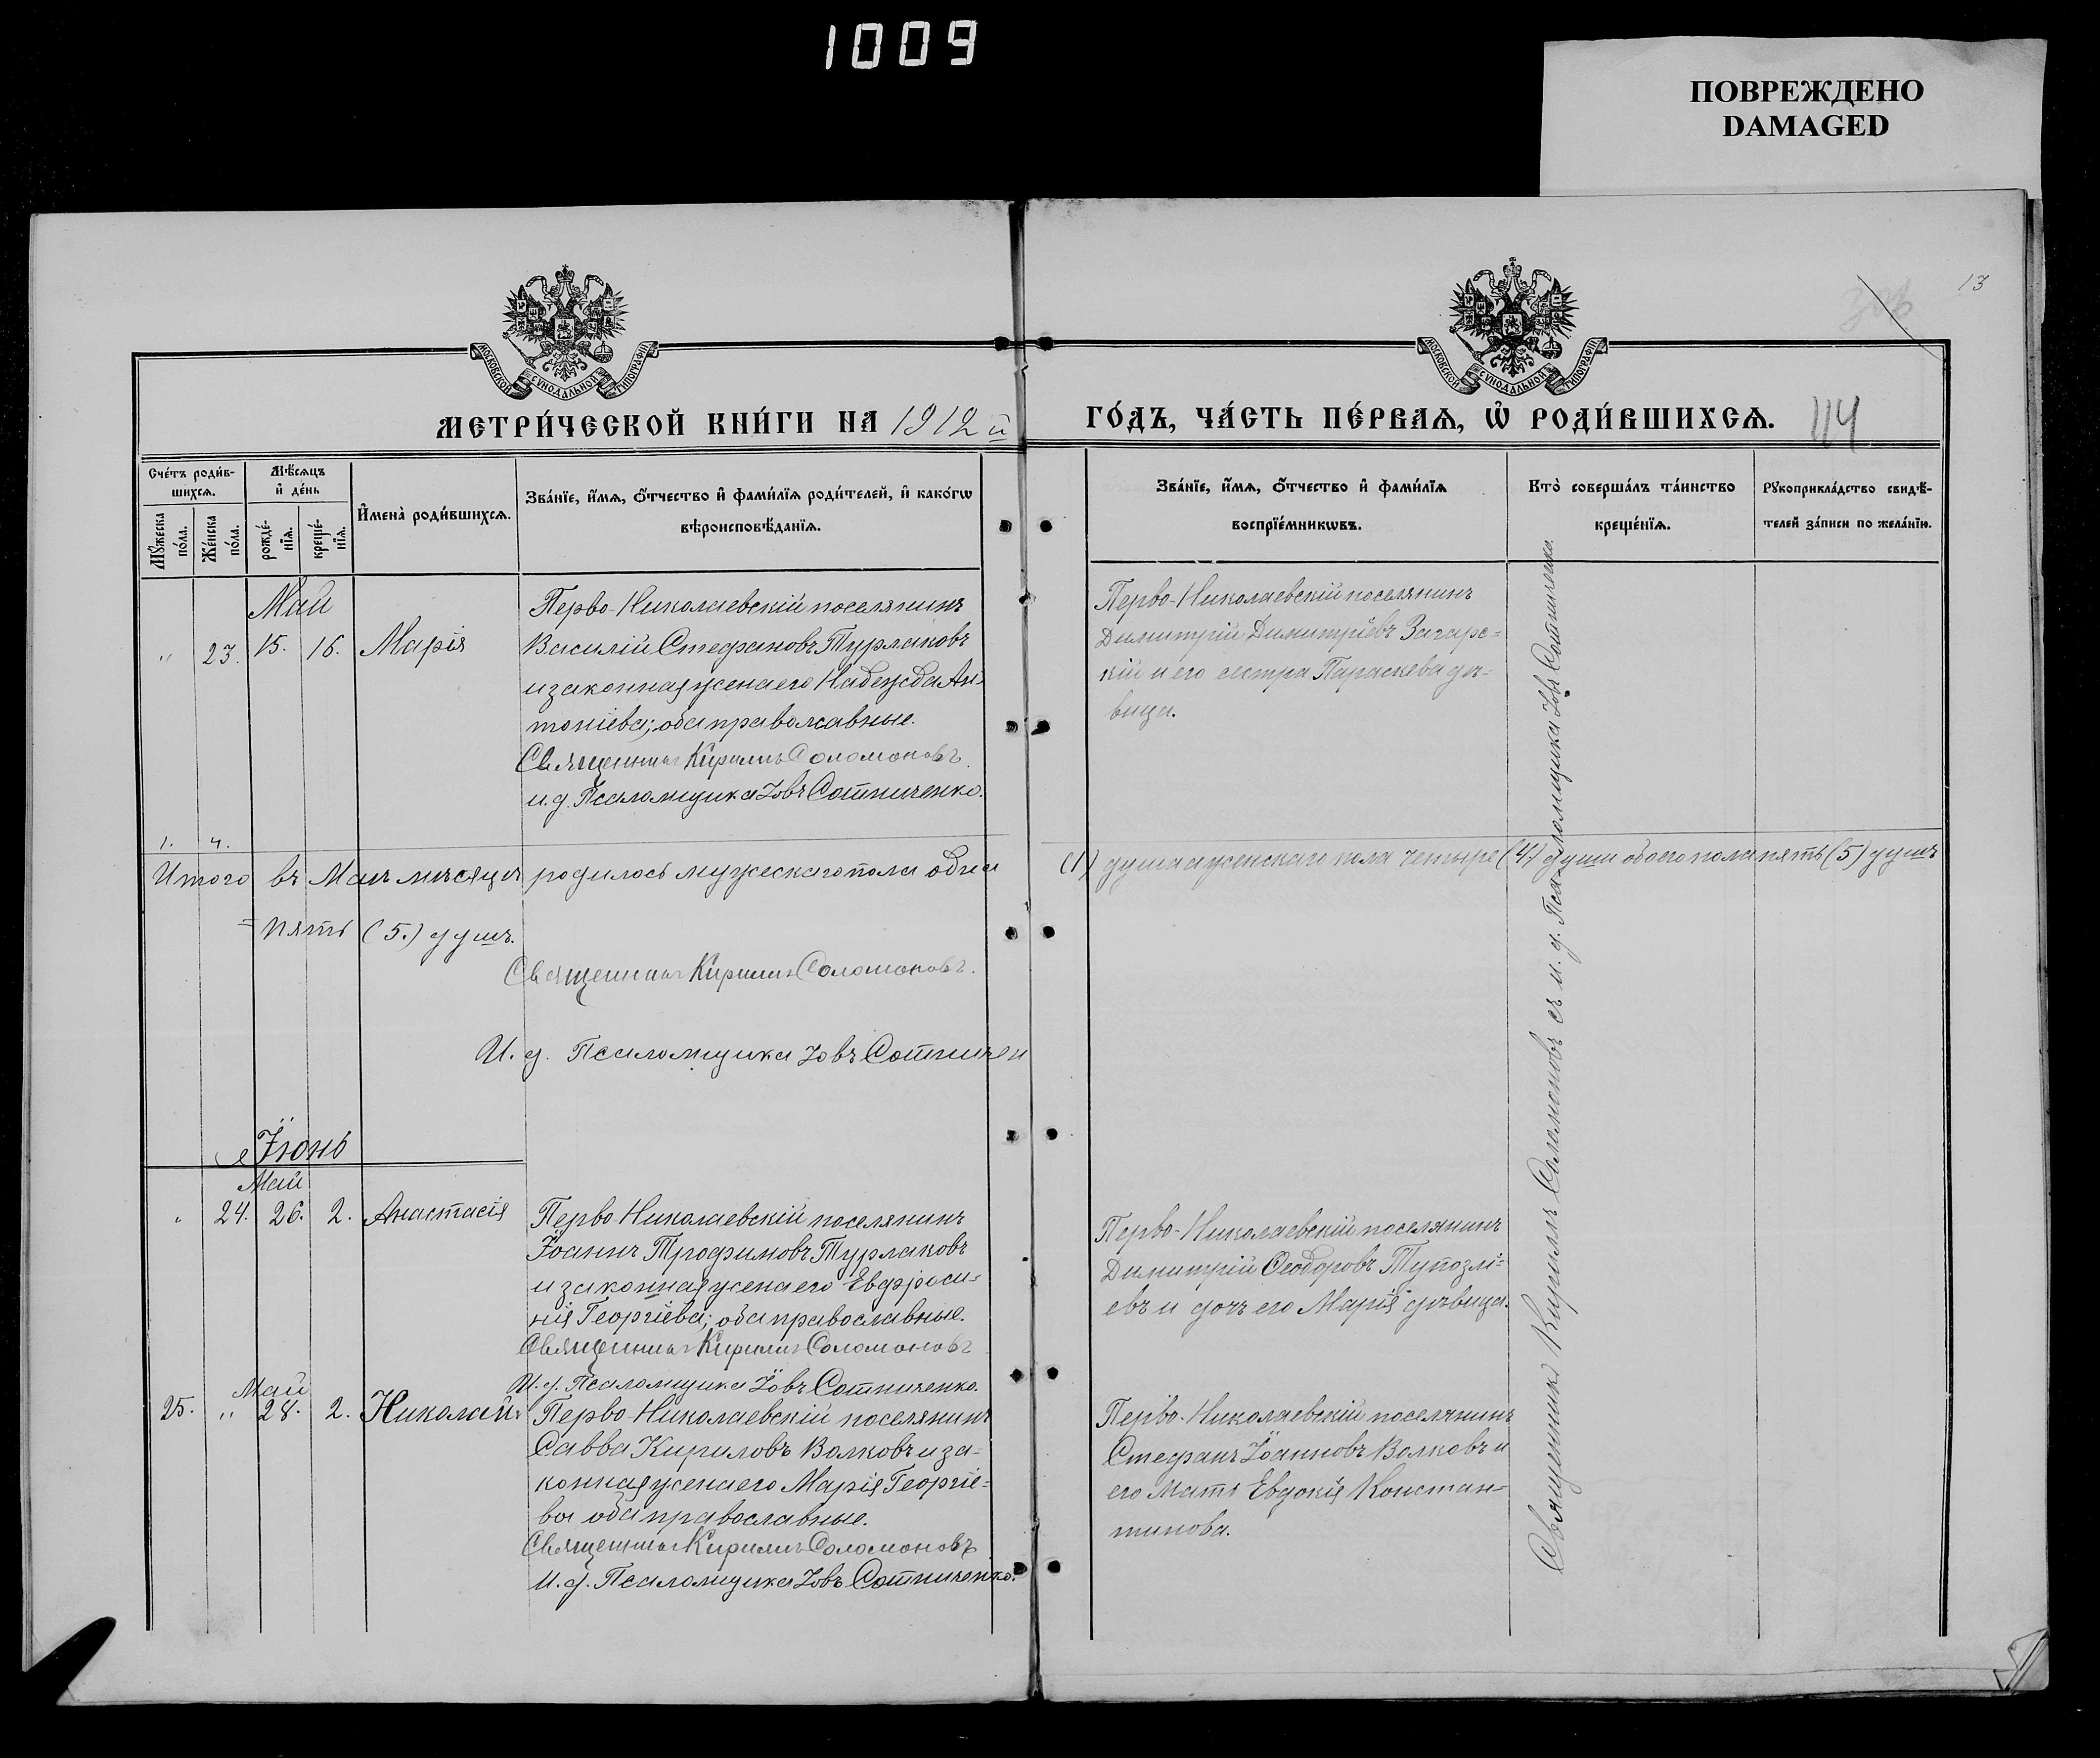 1009
ПОВРЕЖДЕНО
DAMAGED
13
МОСКОВСКОЙ СѴНОДАЛЬНОЙ ТИПОГРАФІИ
МОСКОВСКОЙ СѴНОДАЛЬНОЙ ТИПОГРАФІИ
МЕТРИ́ЧЕСКОЙ КНИ́ГИ НА 1912 й
ГО́ДЪ, ЧА́СТЬ ПЕ́РВАѦ, Ѡ҆ РОДИ́ВШИХСѦ.
114
Сче́тъ роди́в-
шихсѧ.
Мѣ́сѧцъ
и҆ де́нь
Мꙋ́жеска
по́ла.
Же́нска
по́ла.
рожде́-
нїѧ.
креще́-
нїѧ.
И҆мена̀ роди́вшихсѧ.
Зва́нїе, и҆́мѧ, ѻ҆́тчество и҆ фами́лїѧ роди́телей, и҆ како́гѡ
вѣроисповѣ́данїѧ.
Зва́нїе, и҆́мѧ, ѻ҆́тчество и҆ фами́лїѧ
воспрїе́мникѡвъ.
Кто̀ соверша́лъ та́инство
креще́нїѧ.
Рꙋкоприкла́дство свидѣ́-
телей за́писи по жела́нїю.
Май
„ 23. 15. 16. Марія
Перво-Николаевскій поселянинъ
Василій Стефановъ Турлаковъ
и законная жена его Надежда Ан-
тоніева; оба православные.
Священникъ Кириллъ Соломоновъ.
и. д. Псаломщика Іовъ Сотниченко.
Перво-Николаевскій поселянинъ
Димитрій Димитріевъ Загорс=
кій и его сестра Параскева дѣ-
вица.
1. 4.
Итого въ Маѣ мѣсяцѣ родилось мужескаго пола одна (1) душа а женскаго пола четыре (4) души обоего пола пять (5) душъ
= пять (5.) душъ.
Священникъ Кириллъ Соломоновъ.
И. д. Псаломщика Іовъ Сотничен
Іюнь
Май
„ 24. 26. 2. Анастасія
Перво-Николаевскій поселянинъ
Іоаннъ Трофимовъ Турлаковъ
и законная жена его Евфроси=
нія Георгіева; оба православные.
Священникъ Кириллъ Соломоновъ
И. д. Псаломщика Іовъ Сотниченко.
Перво-Николаевскій поселянинъ
Димитрій Ѳеодоровъ Тупозлі=
евъ и дочь его Марія дѣвица.
Май
25. „ 28. 2. Николай
Перво-Николаевскій поселянинъ
Савва Кириловъ Волковъ и за-
конная жена его Марія Георгіе=
ва оба православные.
Священникъ Кириллъ Соломоновъ
И. д. Псаломщика Іовъ Сотниченко.
Перво-Николаевскій поселянинъ
Стефанъ Іоанновъ Волковъ и
его мать Евдокія Констан-
тинова.
Священникъ Кириллъ Соломоновъ съ и. д. Псаломщика Іовъ Сотниченко.